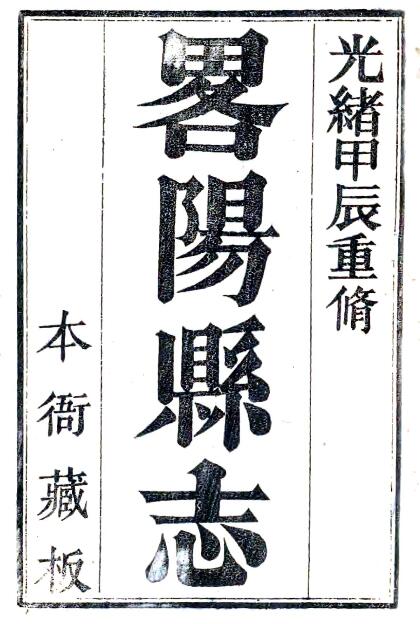 光緒甲辰重脩
畧陽縣志
本衙藏板